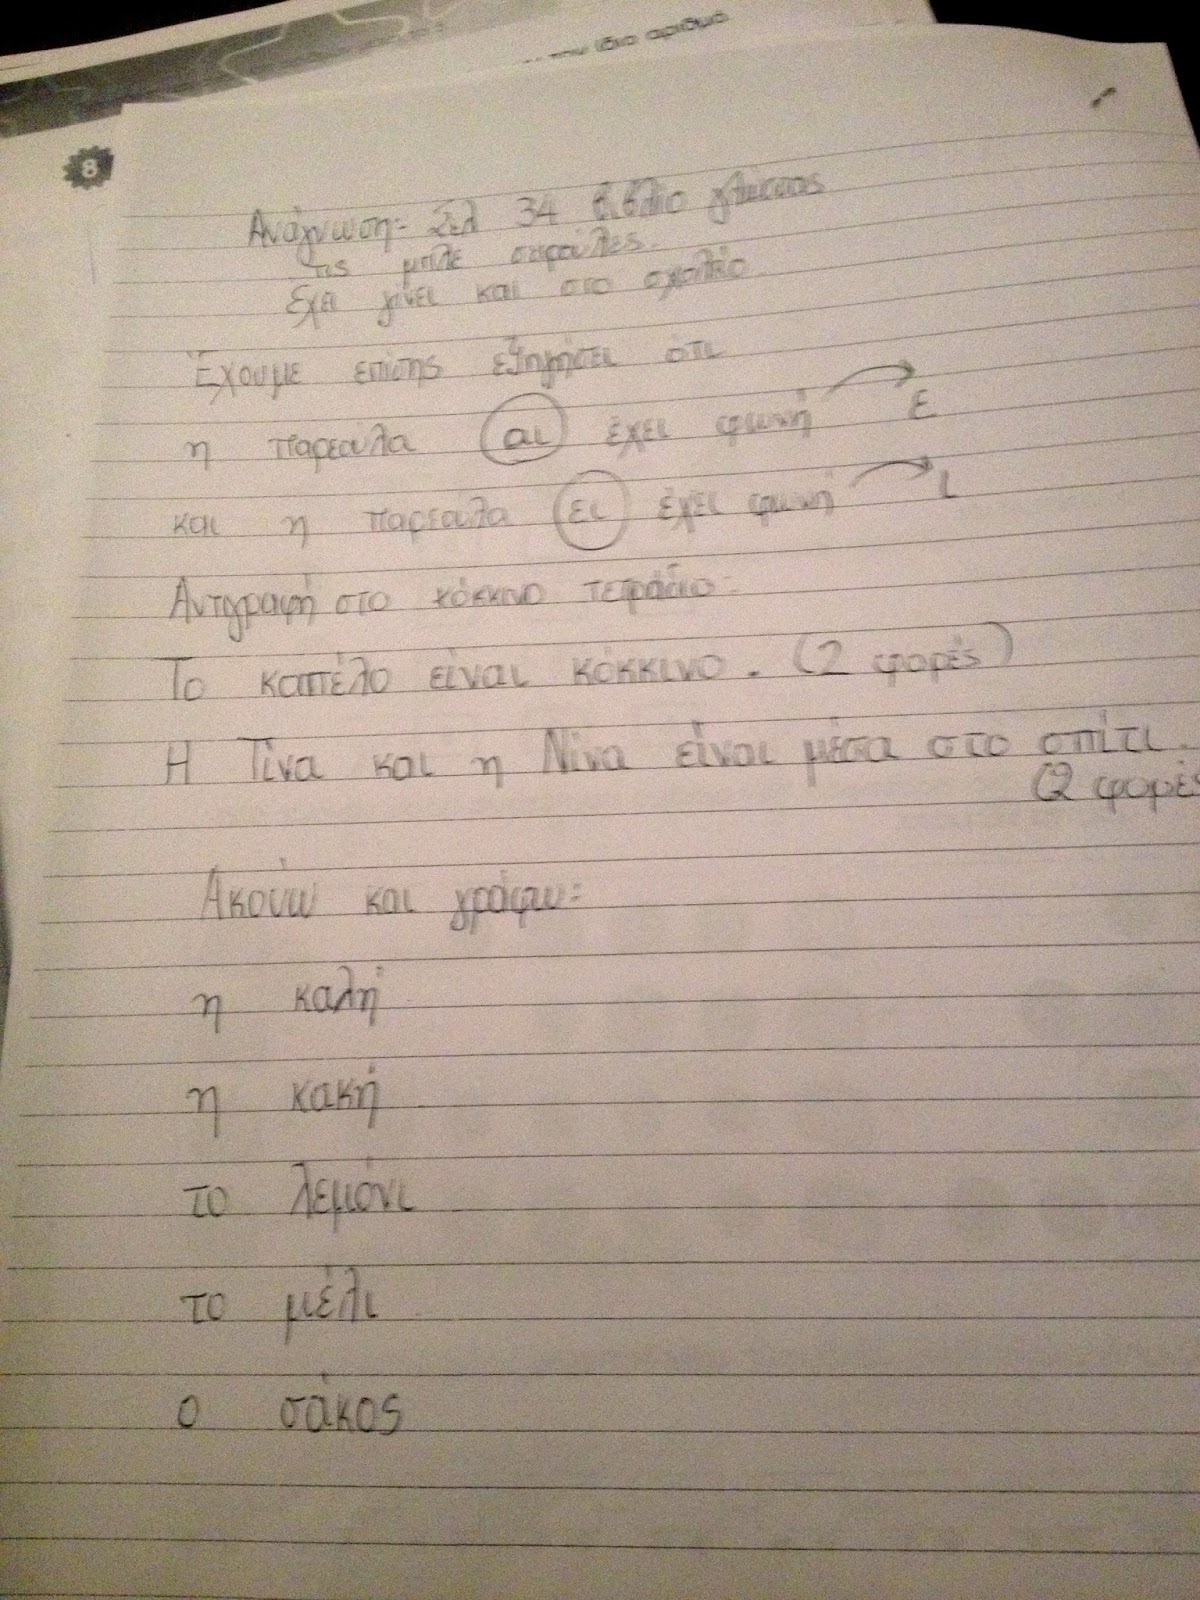 την ίδιο αριθμό
8
Ανάγνωση: Σελ 34 βιβλίο γλώσσας
τις μπλέ σαραύλες.
έχει γίνει και στο σχολείο.
Έχουμε επίσης εξηγήσει ότι
η παρεούλα αι έχει φωνή ε
και η παρεούλα ει έχει φωνή ι
Αντιγραφή στο κόκκινο τετράδιο:
Το καπέλο είναι κόκκινο. (2 φορές)
Η Τίνα και η Νίνα είναι μέσα στο σπίτι.
(2 φορές
Ακούω και γράφω:
η καλή
η κακή
το λεμόνι
το μέλι
ο σάκος